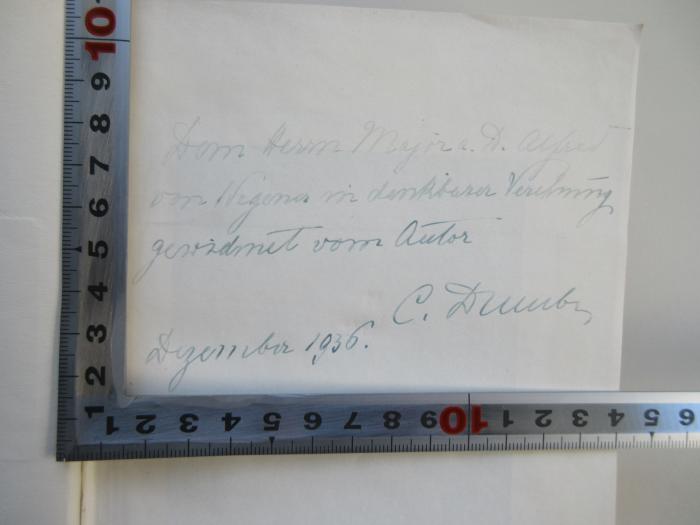 Dem Herrn Major a. D. Alfred
von Wegener in dankbarer Verehrung
gewidmet vom Autor
C.
Dezember 1936.
10 9 8 7 6 5 4 3 2 1
1 2 3 4 5 6 7 8 9 10 1 2 3 4 5 6